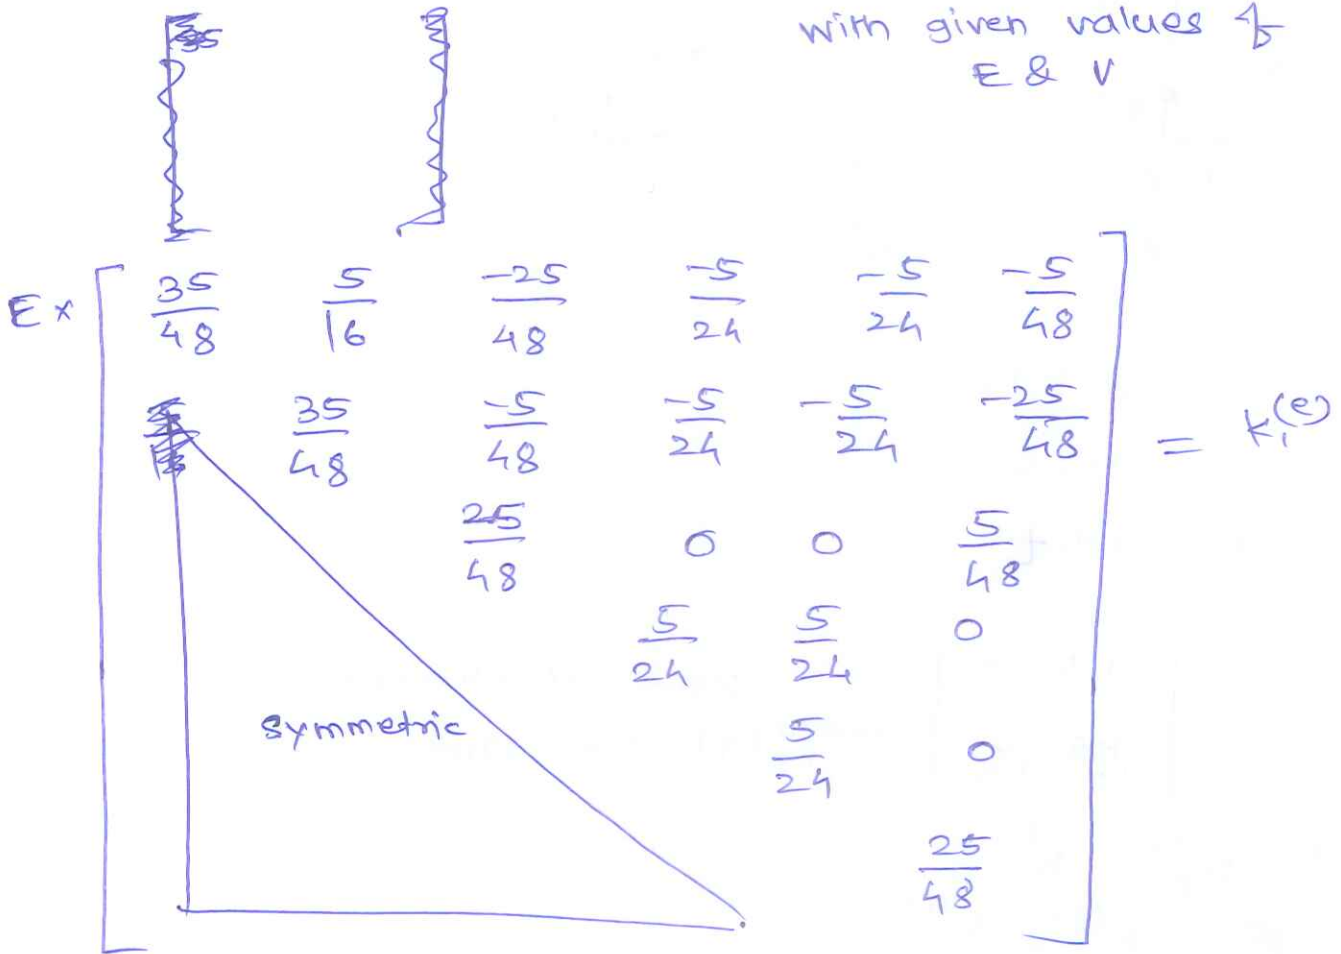 with given values of
E & ν
E × [ 35/48 5/16 -25/48 -5/24 -5/24 -5/48 ]
35/48 -5/48 -5/24 -5/24 -25/48 = k₁^(e)
25/48 0 0 5/48
5/24 5/24 0
symmetric 5/24 0
25/48